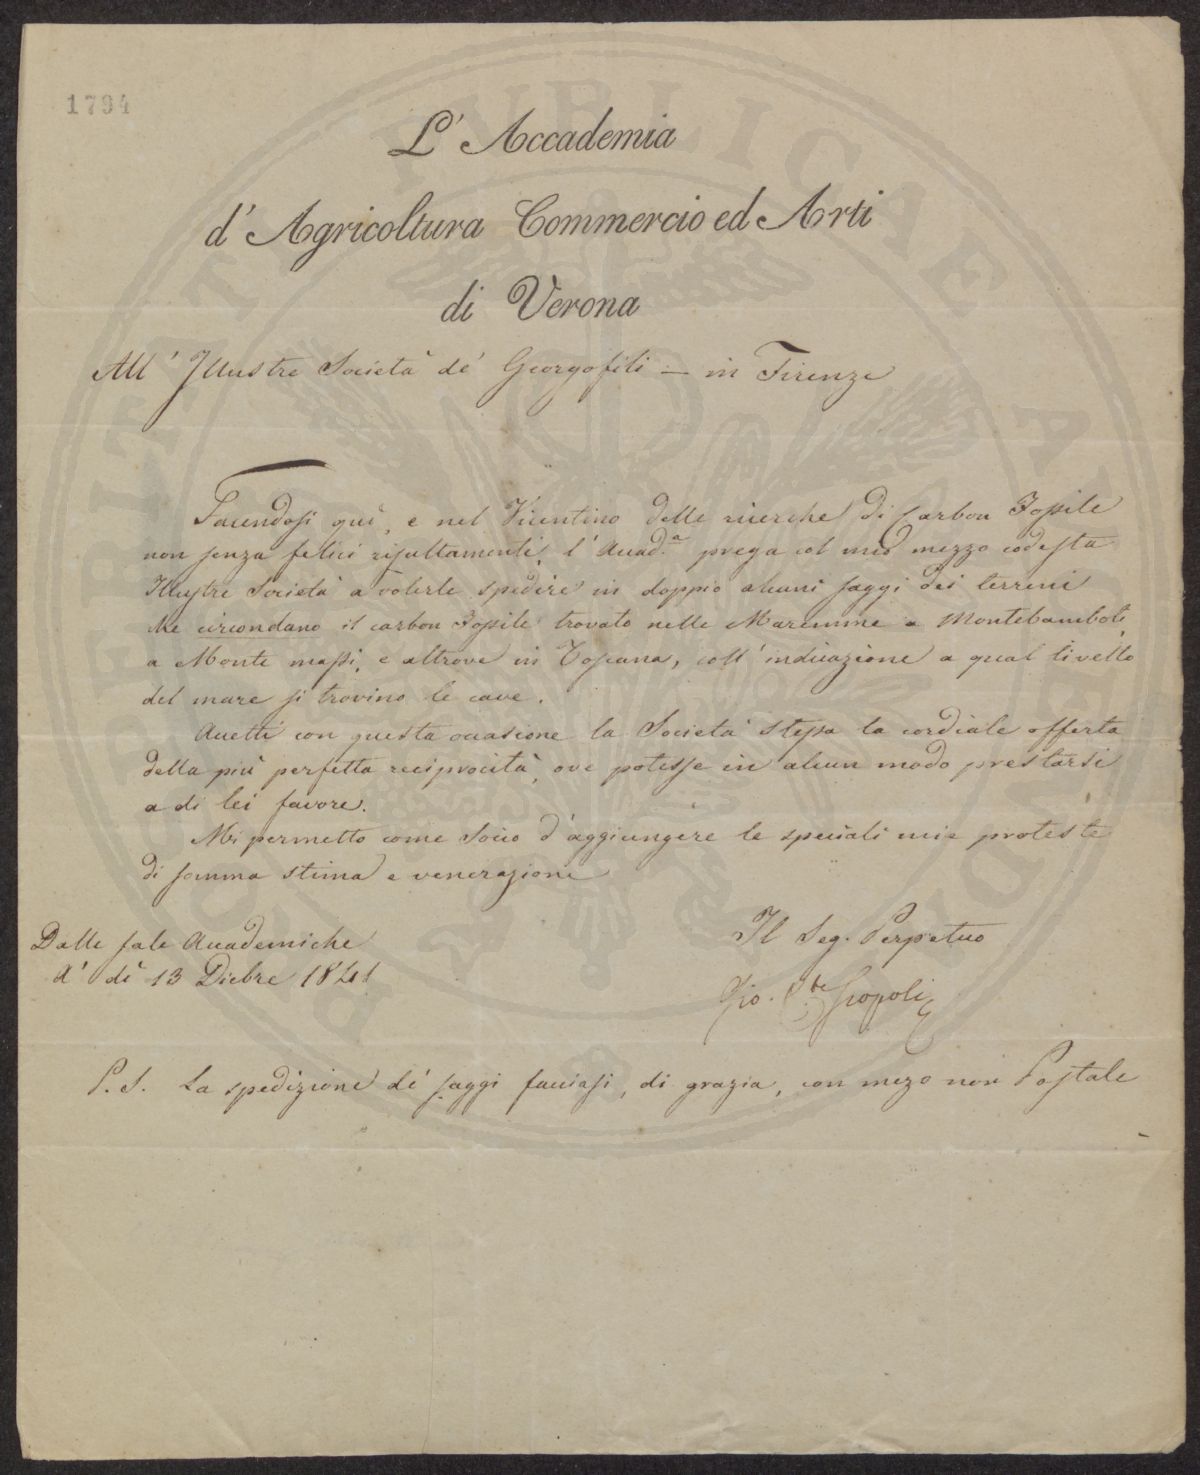 1794
L' Accademia
d' Agricoltura Commercio ed Arti
di Verona
All' Illustre Società de' Georgofili — in Firenze
Facendosi quì, e nel Vicentino delle ricerche di Carbon Fossile
non senza felici risultamenti, l' Accad.a prega col mio mezzo codesta
Illustre Società a volerle spedire in doppio alcuni saggi dei terreni
che circondano il carbon Fossile trovato nelle Maremme a Montebamboli,
a Monte massi, e altrove in Toscana, coll' indicazione a qual livello
del mare si trovino le cave.
Accetti con questa occasione la Società stessa la cordiale offerta
della più perfetta reciprocità, ove potesse in alcun modo prestarsi
a di lei favore.
Mi permetto come Socio d' aggiungere le speciali mie proteste
di somma stima e venerazione
Dalle sale Accademiche
A' dì 13 Dicbre 1841
Il Seg. Perpetuo
Gio. C.te Scopoli
P. S. La spedizione de' saggi facciasi, di grazia, con mezo non Postale